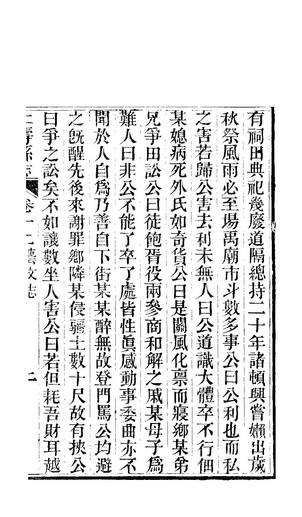 有祠田典祀幾廢道隔總持二十年諸頓興嘗嬾出歲
秋祭風雨必至場禹廟市斗數多事公曰公利也而私
之害若歸公害去利未無人曰公道識大體卒不行佃
某媳病死外氏如奇貨公曰是關風化稟而寢鄉某弟
兄爭田訟公曰徒飽胥役兩參商和解之戚某母子為
難人曰非公不能了卒了處皆性眞感動事委曲亦不
聞於人自為乃善自下街某某醉無故登門罵公均避
之旣醒先後來謝罪鄉隣某侵疆土數十尺故有挾公
曰爭之訟矣不如讓數坐人害公曰若但耗吾財耳越
壽縣志 卷十二 藝文志